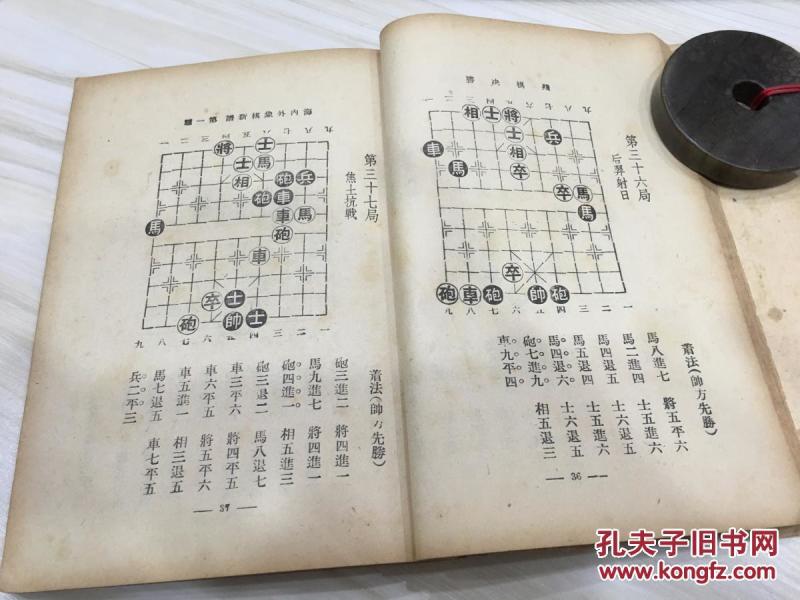 殘棋決勝
第三十六局
后羿射日
相士將
士兵
車相
馬卒
卒馬
馬
卒
砲車砲帥砲
九八七六五四三二一
着法(帥方先勝)
馬八進七 將五平六
馬二進四 士五進六
馬四退五 士六退五
馬五退四 士五進六
馬四退六 士六退五
砲七進九 相五退三
車九平四
— 36 —
海内外象棋新譜第一
第三十七局
焦土抗戰
將士
士馬
相砲兵
砲車
車馬
馬砲
車
卒士
砲帥士
九八七六五四三二一
着法(帥方先勝)
砲三進二 將四進一
馬九進七 將四進一
砲四進一 相五進三
砲三退二 馬八退七
車三平六 將四平五
車六平五 將五平六
車五進一 相三退五
馬七退五 車七平五
兵二平三
— 37 —
孔夫子旧书网
www.kongfz.com